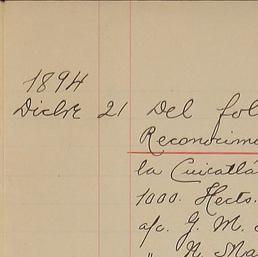 1894
Dicbre 21 Del fol
Reconocim
la Cuicatlá
1000. Hects.
a/c. G. M.
" N. Ma